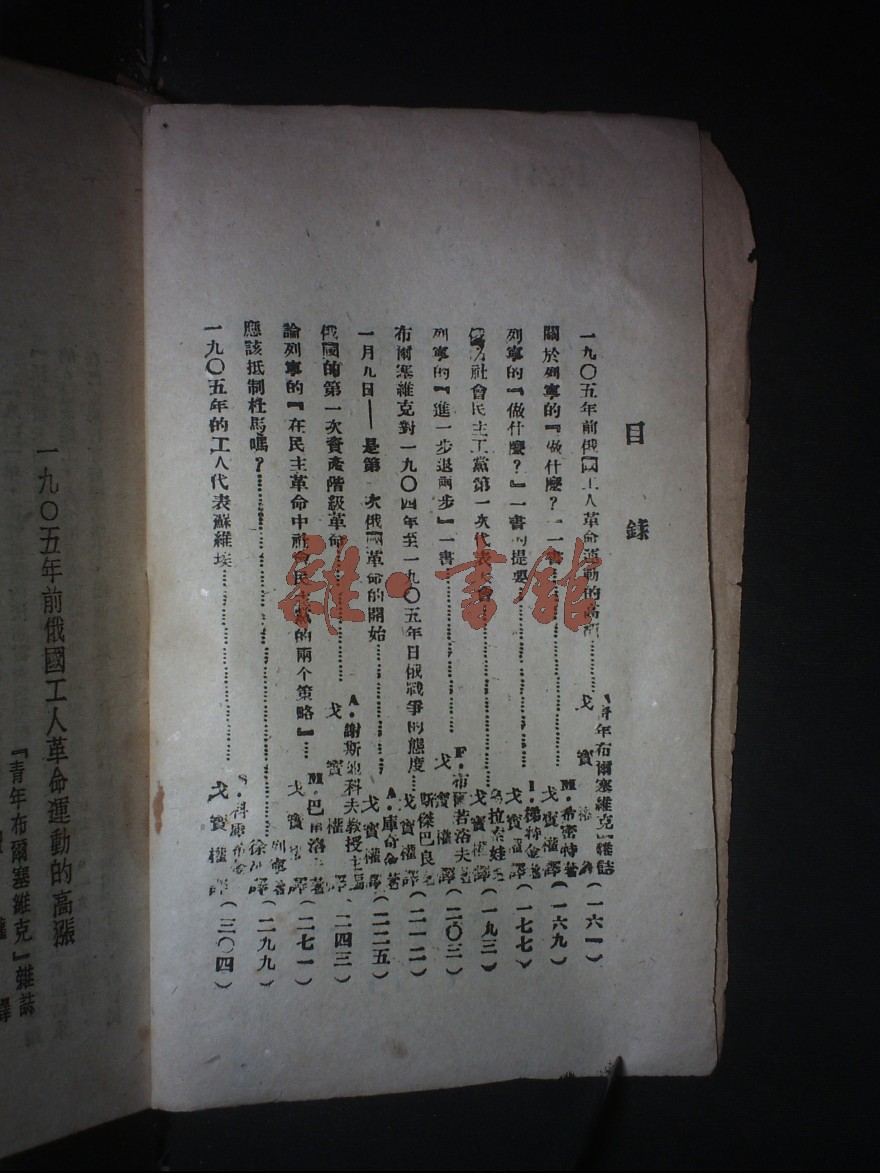 目錄
一九〇五年前俄國工人革命運動的高
『青年布爾塞維克』雜誌
戈寶權譯(一六一)
關於列寧的『做什麼?』一書
M·希密特著
戈寶權譯(一六九)
列寧的『做什麼?』一書的提要
I·梯特金著
戈寶權譯(一七七)
社會民主工黨第一次代表大會
烏拉索娃
戈寶權譯(一九三)
列寧的『進一步退兩步』一書
F·布爾若洛夫著
戈寶權譯(二〇三)
布爾塞維克對一九〇四年至一九〇五年日俄戰爭的態度
斯傑巴良
戈寶權譯(二一二)
一月九日——是第一次俄國革命的開始
A·庫命著
戈寶權譯(二二五)
俄國的第一次資產階級革命
A·謝斯 科夫教授主編
戈寶權譯(二四三)
論列寧的『在民主革命中社會民主黨的兩个策略』
M·巴 洛 著
戈寶權譯(二七一)
應該抵制杜馬嗎?
列寧著
徐 譯(二九九)
一九〇五年的工人代表蘇維埃
S·科 著
戈寶權譯(三〇四)
雜·書館
一九〇五年前俄國工人革命運動的高漲
『青年布爾塞維克』雜誌
權譯